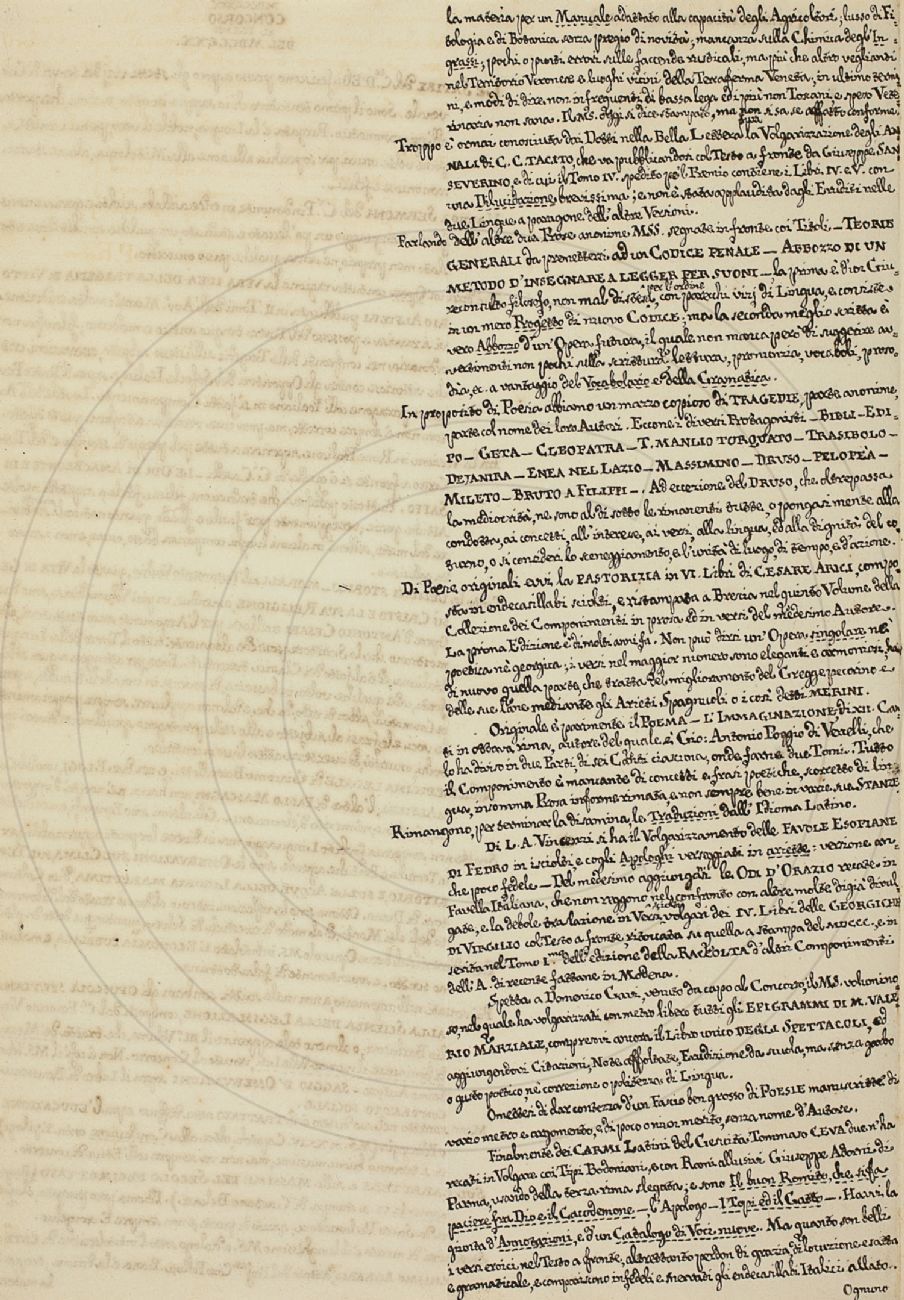 la materia per un Manuale adattato alla capacità degli Agricoltori; lusso di Fi-
tologia e di Botanica senza pregio di novità; mancanza sulla Chimica degl'In-
grassi; pochi o punti errori sulle faccende rusticali, ma più che altro veglianti
nel Territorio Veronese e luoghi vicini della Terraferma Veneta; in ultimo termi-
ni, e modi di dire non infrequenti di bassa lega ed i più non Toscani, e spero Vete-
rinaria non sana. Il MS. oggi si dice stampato, ma non si sa se affatto conforme.
Troppo è ormai conosciuta dai Dotti nella Bella Lettera la Volgarizzazione degli AN-
NALI di C. C. TACITO, che va pubblicandosi col Testo a fronte da Giuseppe SAN
SEVERINO, e di cui il Tomo IV. spedito pe'l Premio contiene i Libri IV. e V. con
una Dilucidazione brevissima; e non è stata applaudita dagli Eruditi nelle
due Lingue a paragone dell'altre Versioni.
Parlando dell'altre due Prose anonime MSS. segnate in fronte coi Titoli. — TEORIE
GENERALI da premettersi ad un CODICE PENALE — ABBOZZO DI UN
METODO D'INSEGNARE A LEGGER PER SUONI — la prima è d'un Giu-
reconsulto filosofo, non mal distesa per l'ordine, con parecchi vizj di Lingua, e consiste
in un mero Progetto di nuovo CODICE; ma la seconda meglio scritta è
vero Abbozzo d'un'Opera futura, il quale non manca però di suggerire av-
vertimenti non pochi sulla scrittura, lettura, pronunzia, vocaboli, proso-
dia, ec. a vantaggio del Vocabolario e della Gramatica.
In proposito di Poesia abbiamo un mazzo copioso di TRAGEDIE, parte anonime,
parte col nome dei loro Autori. Eccone i diversi Protagonisti — BIBLI — EDI-
PO — GETA — CLEOPATRA — T. MANLIO TORQUATO — TRASIBOLO —
DEJANIRA — ENEA NEL LAZIO — MASSIMINO — DRUSO — PELOPEA —
MILETO — BRUTO A FILIPPI —. Ad eccezione del DRUSO, che oltrepassa
la mediocrità, ne sono al di sotto le rimanenti tutte, o pongasi mente alla
condotta, ai concetti, all'interesse, ai versi, alla lingua, ed alla dignità del co-
turno, o si consideri lo sceneggiamento, e l'unità di luogo, di tempo, e d'azione.
Di Poesie originali evvi, la PASTORIZIA in VI. Libri di CESARE ARICI, compo-
sta in endecasillabi sciolti, e ristampata a Brescia nel quinto Volume della
Collezione dei Componimenti in prosa ed in versi del medesimo Autore.
La prima Edizione è di molti anni fa. Non può dirsi un'Opera singolare nè
poetica nè georgica; i versi nel maggior numero sono eleganti e armoniosi; ha
di nuovo quella parte, che tratta del miglioramento del Gregge pecorino e
delle sue Lane mediante gli Arieti Spagnuoli o i così detti MERINI.
Originale è parimente il POEMA — L'IMMAGINAZIONE, di XII. Can-
ti in ottava rima, autore del quale è Gio: Antonio Poggio di Vercelli, che
lo ha diviso in due Parti, di sei Canti ciascuna, onde farne due Tomi. Tutto
il Componimento è mancante di concetti e frasi poetiche, scorretto di lin-
gua, insomma Prosa informe rimata, e non sempre bene in varie sue STANZE
Rimangono, per terminar la disamina, le Traduzioni dall'Idioma Latino.
Di L. A. Vincenzi si ha il Volgarizzamento delle FAVOLE ESOPIANE
DI FEDRO in isciolti, e cogli Apologhi verseggiati in ariette: versione an-
che poco fedele — Del medesimo aggiungansi le ODI D'ORAZIO recate in
Favella Italiana, che non reggono nel confronto con altre molte di già divul-
gate, e la debole traslazione in Versi sciolti volgari dei IV. Libri delle GEORGICHE
DI VIRGILIO col Testo a fronte, ritoccata su quella a stampa del MDCCC., e in
serita nel Tomo I.mo dell'edizione della RACCOLTA d'altri Componimenti
dell'A. di recente fattane in Modena.
Spetta a Domenico Gazzi, venuto da capo al Concorso, il MS. volumino
so, nel quale ha volgarizzati con metro libero tutti gli EPIGRAMMI DI M. VALE
RIO MARZIALE, compresivi ancora il Libro unico DEGLI SPETTACOLI, ed
aggiungendovi Citazioni, Note affoltate, Erudizione da scuola, ma senza garbo
o gusto poetico, nè correzione o politezza di Lingua.
Omettesi di dar contezza d'un Fascio ben grosso di POESIE manuscritte di
vario metro e argomento, e di poco o niun merito, senza nome d'Autore.
Finalmente dei CARMI Latini del Gesuita Tommaso CEVA due n'ha
recati in Volgare coi Tipi Bodoniani, e con Rami allusivi Giuseppe Adorni di
Parma, usando della terza rima slegata; e sono Il buon Romito, che si fa
paciere fra Dio e il Cacodemone — l'Apologo — I Topi ed il Gatto —. Havvi la
giunta d'Annotazioni, e d'un Catalogo di Voci nuove. Ma quanto son belli
i versi eroici nel Testo a fronte, altrettanto perdon di grazia, di locuzione esatta
e gramaticale, e compariscono infedeli e snervati gli endecasillabi Italici allato.
Ognuno